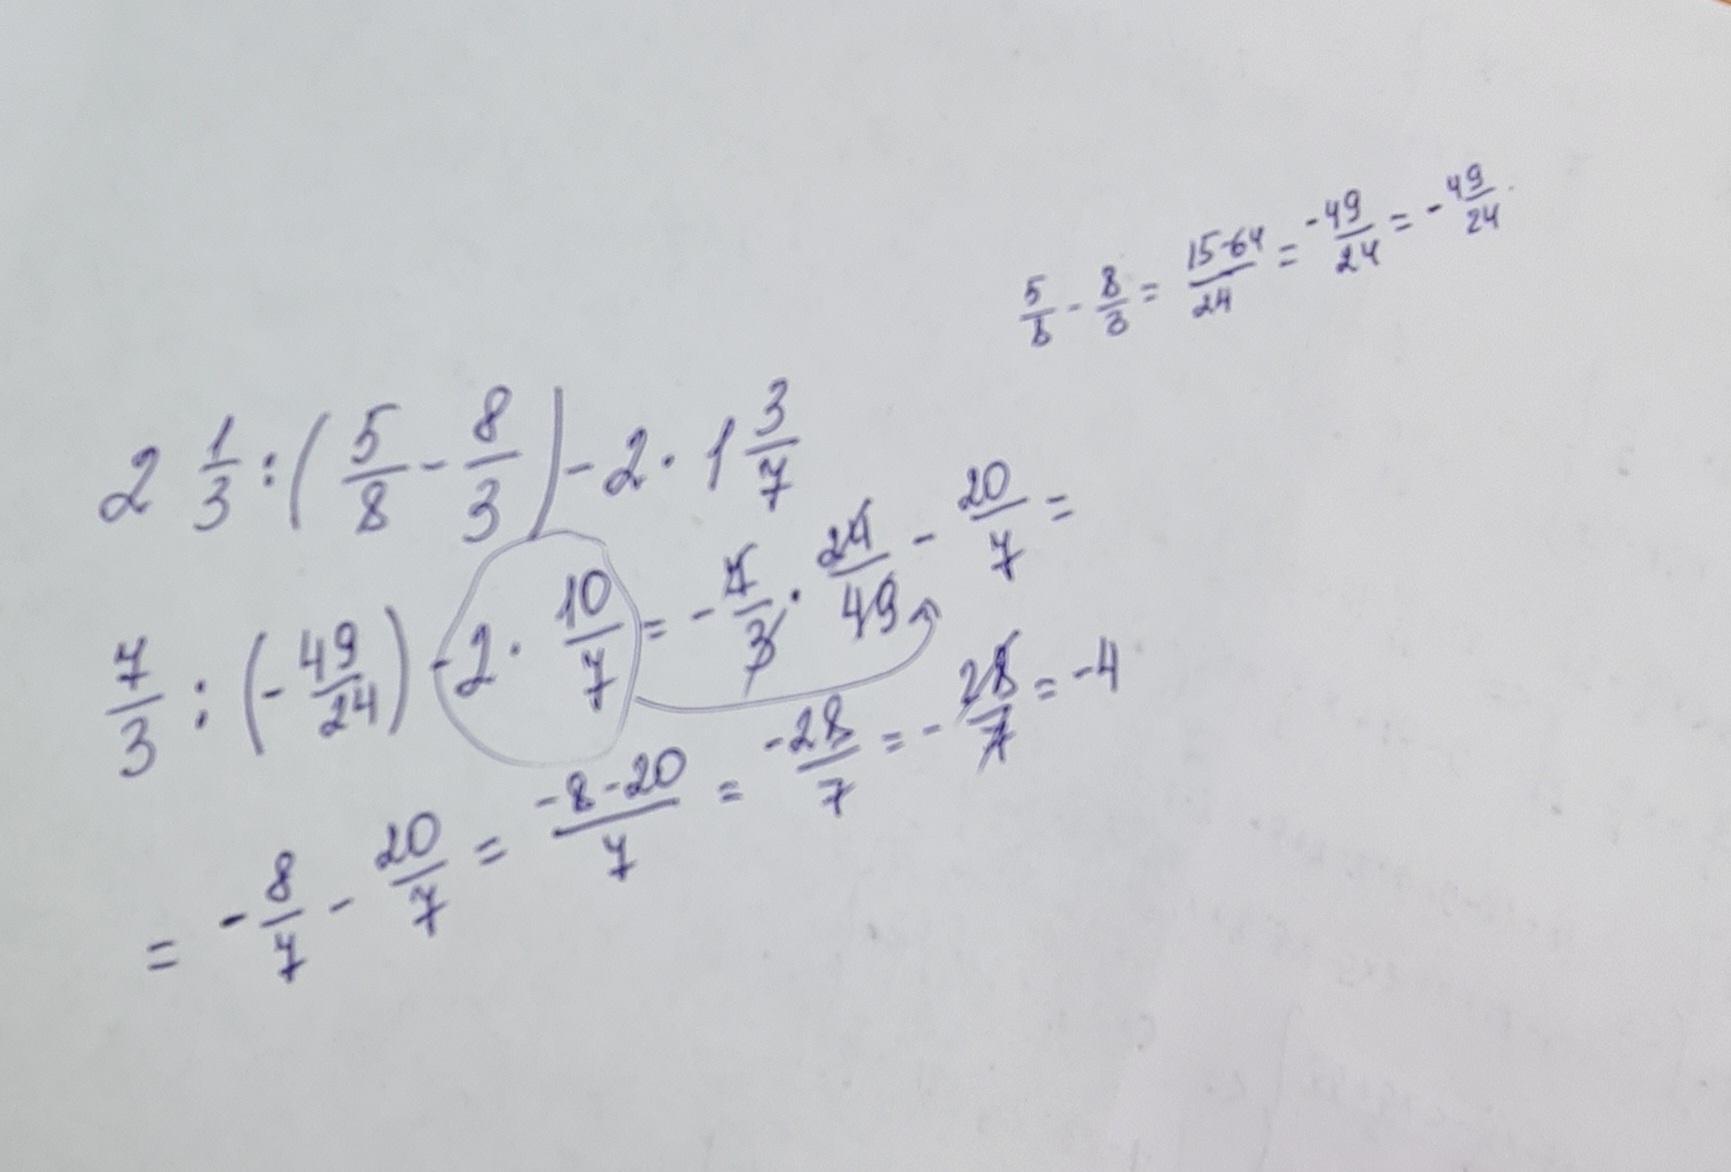 5/8 - 8/3 = 15-64/24 = -49/24 = -49/24
2 1/3 : (5/8 - 8/3) - 2 · 1 3/7
7/3 : (-49/24) - 2 · 10/7 = -7/3 · 24/49 - 20/7 =
= -8/7 - 20/7 = -8-20/7 = -28/7 = -28/7 = -4